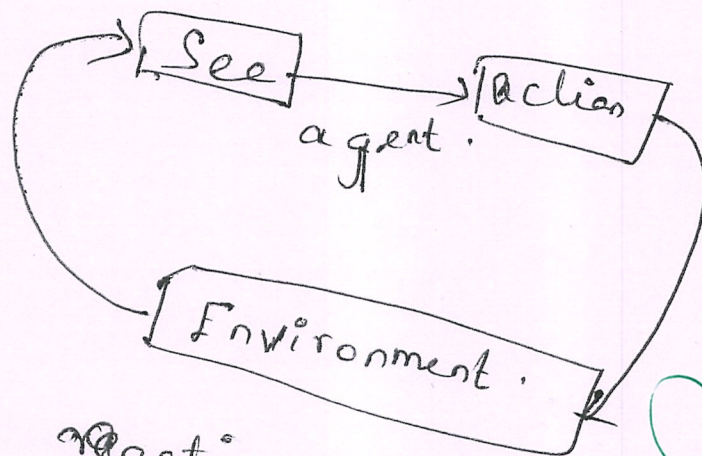 See
action
agent.
Environment.